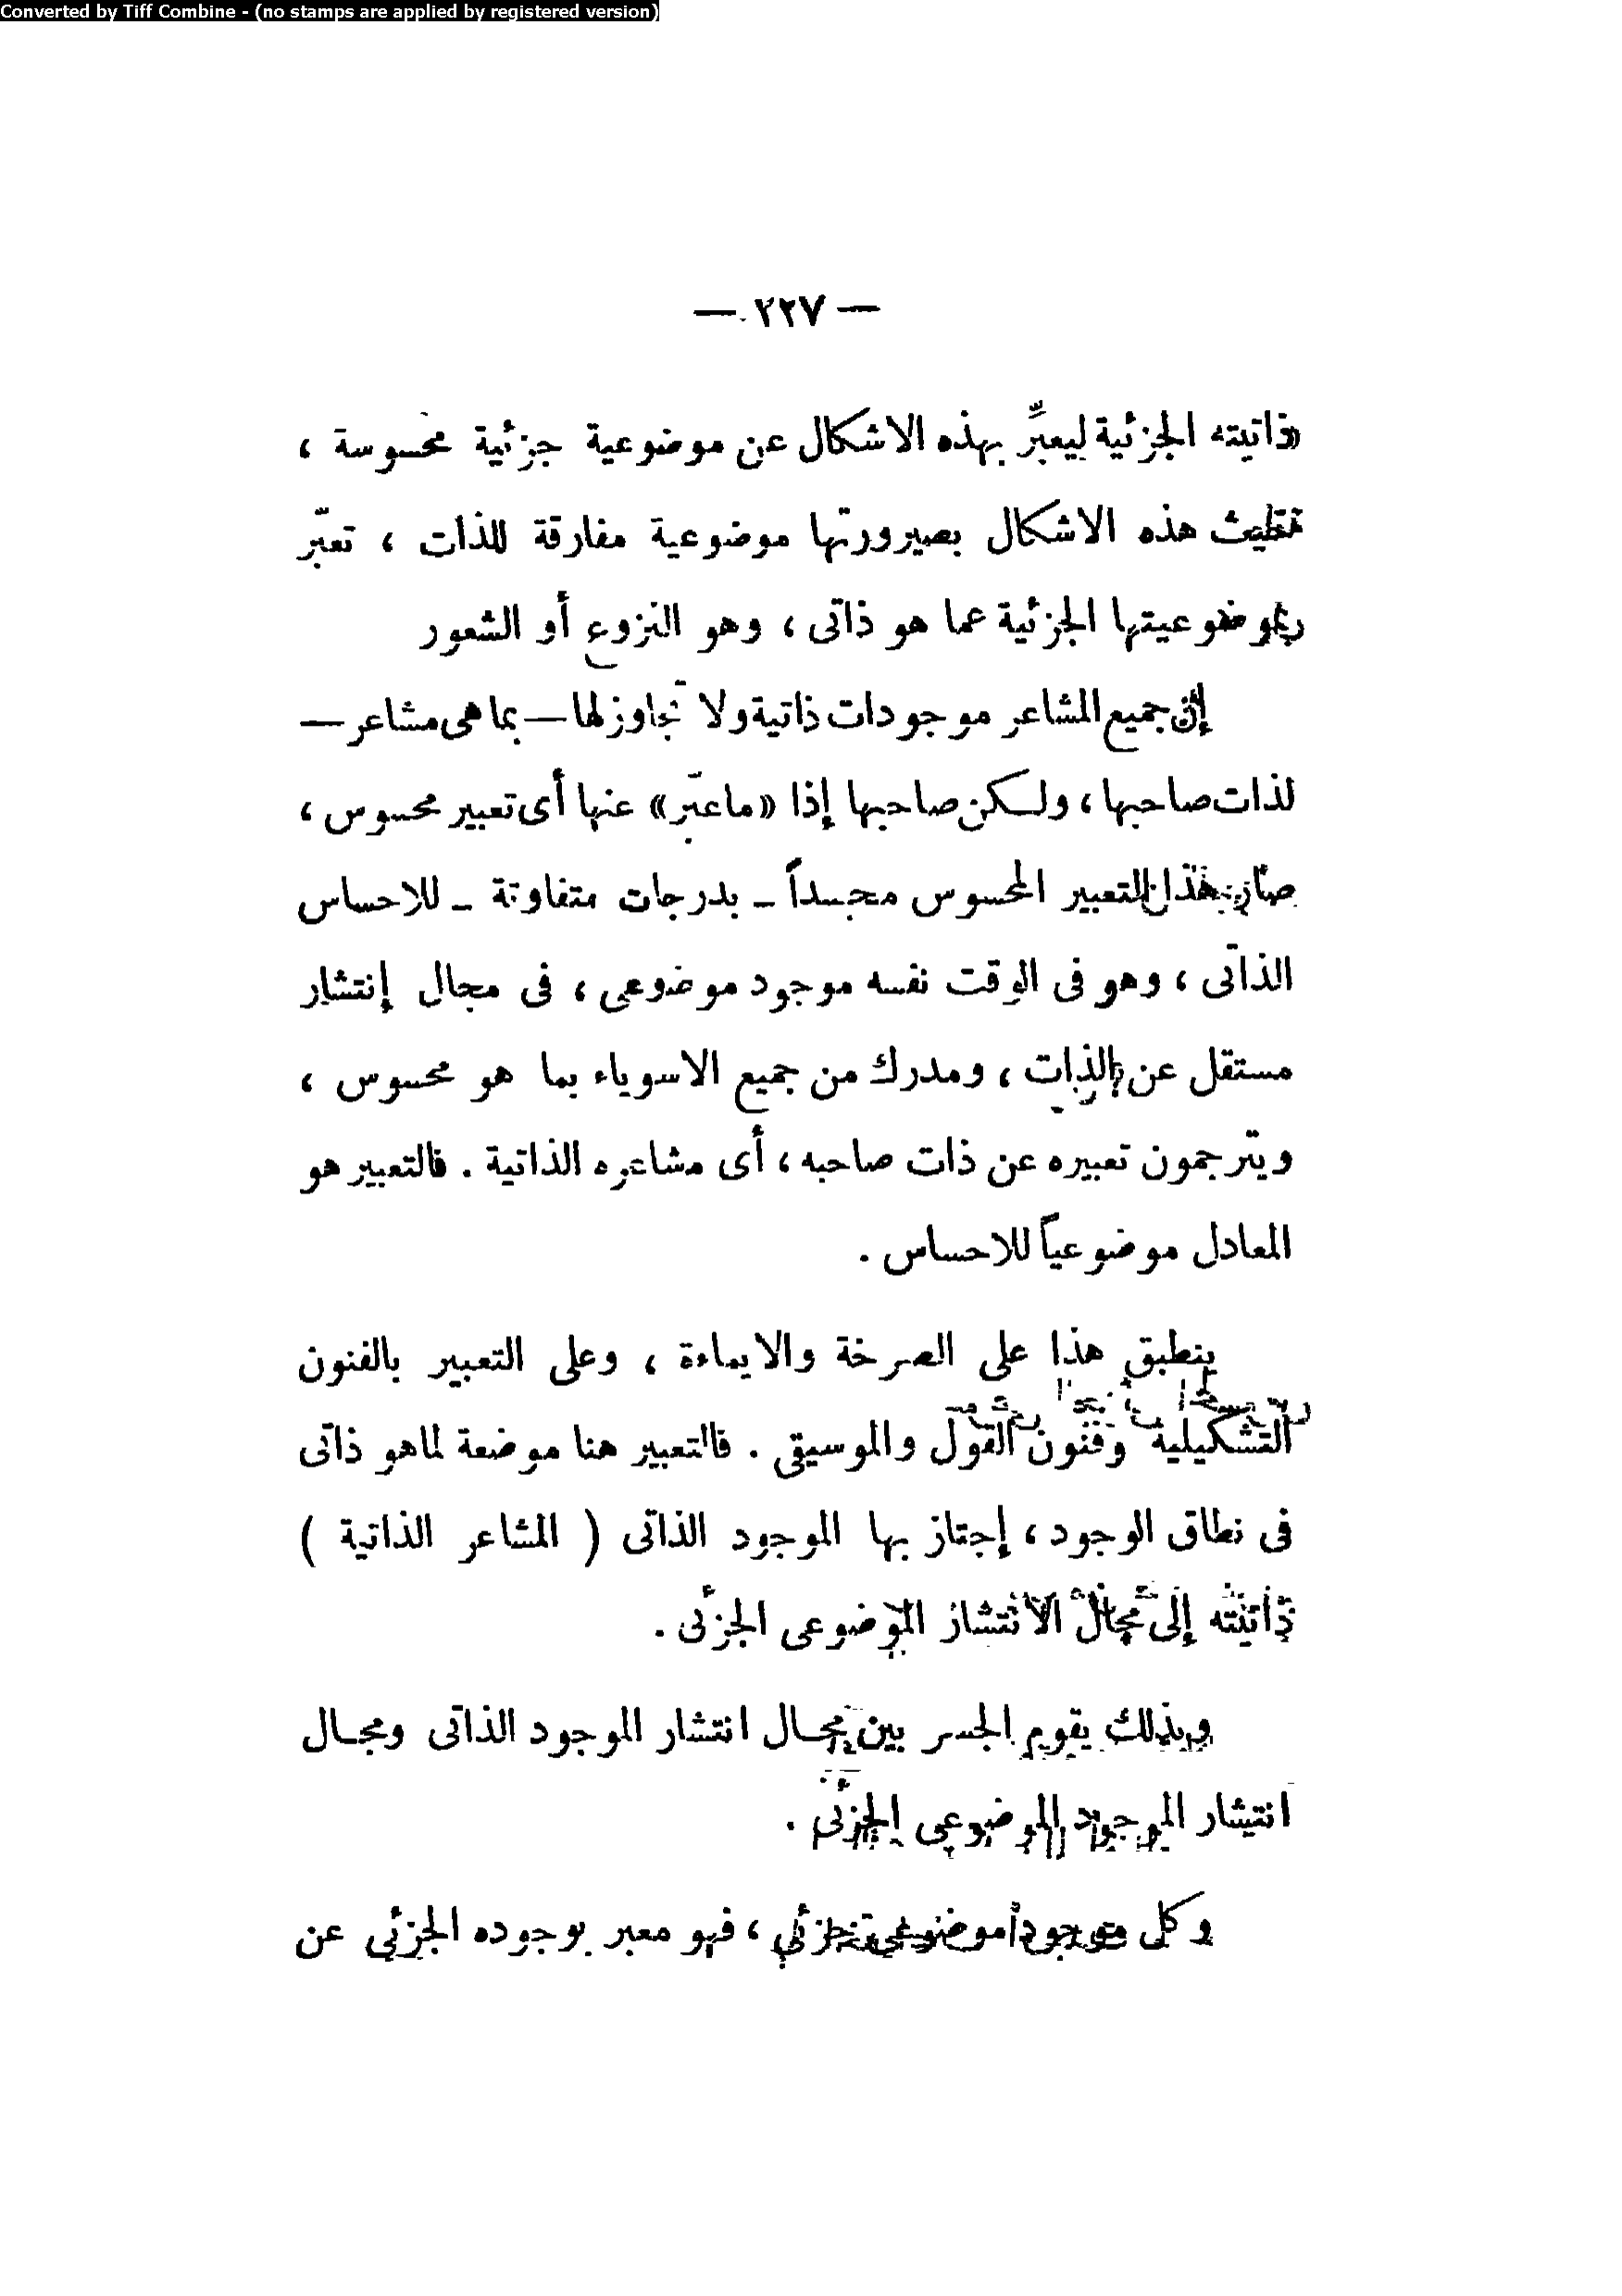 Converted by Tiff Combine - (no stamps are applied by registered version)
— ٢٢٧ —
ذاتيته الجزئية ليعبِّر بهذه الاشكال عن موضوعية جزئية محسوسة ،
هذه الاشكال بصيرورتها موضوعية مفارقة للذات ، تعبّر
بموضوعيتها الجزئية عما هو ذاتى ، وهو النزوع أو الشعور
إن جميع المشاعر موجودات ذاتية ولا تجاوز لها — بما هى مشاعر —
لذات صاحبها ، ولكن صاحبها إذا «ما عبّر» عنها أى تعبير محسوس ،
صار هذا التعبير المحسوس مجسداً – بدرجات متفاوتة – للاحساس
الذاتى ، وهو فى الوقت نفسه موجود موضوعى ، فى مجال إنتشار
مستقل عن الذات ، ومدرك من جميع الاسوياء بما هو محسوس ،
ويترجمون تعبيره عن ذات صاحبه ، أى مشاعره الذاتية . فالتعبير هو
المعادل موضوعياً للاحساس .
ينطبق هذا على الصرخة والايماءة ، وعلى التعبير بالفنون
التشكيلية وفنون القول والموسيقى . فالتعبير هنا موضعة لماهو ذاتى
فى نطاق الوجود ، إجتاز بها الموجود الذاتى ( المشاعر الذاتية )
ذاتيته إلى مجال الانتشار الموضوعى الجزئى .
وبذلك يقوم الجسر بين مجـال انتشار الموجود الذاتى ومجـال
انتشار الموجود الموضوعى الجزئى .
وكل موجود موضوعى جزئى ، فهو معبر بوجوده الجزئى عن